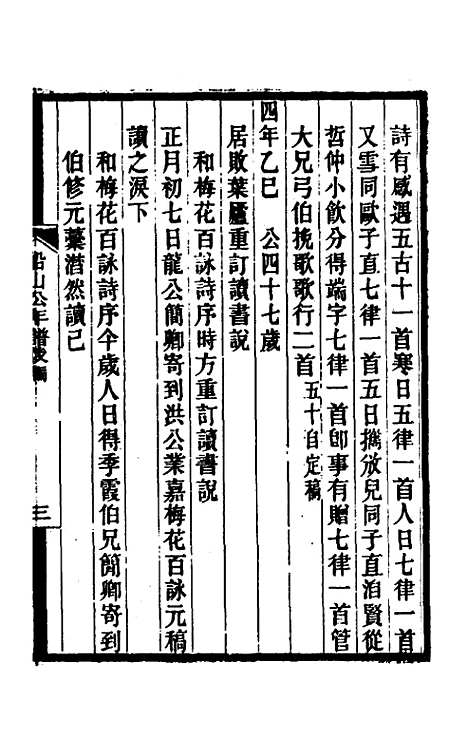 詩有感遇五古十一首寒日五律一首人日七律一首
又雪同歐子直七律一首五日攜攽兒同子直洎賢從
哲仲小飲分得端字七律一首卽事有贈七律一首管
大兄弓伯挽歌歌行二首五十自定稿
四年乙巳 公四十七歲
居敗葉廬重訂讀書說
和梅花百詠詩序時方重訂讀書說
正月初七日龍公簡卿寄到洪公業嘉梅花百詠元稿
讀之淚下
和梅花百詠詩序今歲人日得季霞伯兄簡卿寄到
伯修元藳潸然讀已
船山公年譜後編
三